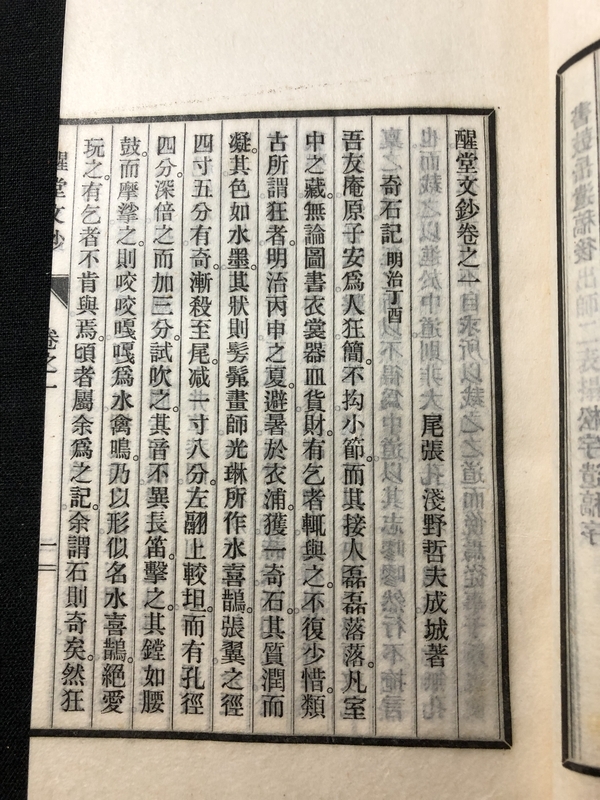 醒堂文鈔卷之一
尾張 淺野哲夫成城著
奇石記 明治丁酉
吾友庵原子安爲人狂簡。不拘小節。而其接人磊磊落落。凡室
中之藏。無論圖書衣裳器皿貨財。有乞者輒與之。不復少惜。類
古所謂狂者。明治丙申之夏。避暑於衣浦。獲一奇石。其質潤而
凝。其色如水墨。其狀則髣髴畫師光琳所作水喜鵲。張翼之徑
四寸五分有奇。漸殺至尾。減一寸八分。左翮上較坦。而有孔徑
四分。深倍之而加三分。試吹之。其音不異長笛。擊之。其鏜如腰
鼓。而摩挲之。則咬咬嘎嘎爲水禽鳴。乃以形似名水喜鵲。絕愛
玩之。有乞者不肯與焉。頃者屬余爲之記。余謂石則奇矣。然狂
醒堂文鈔 卷之一 一